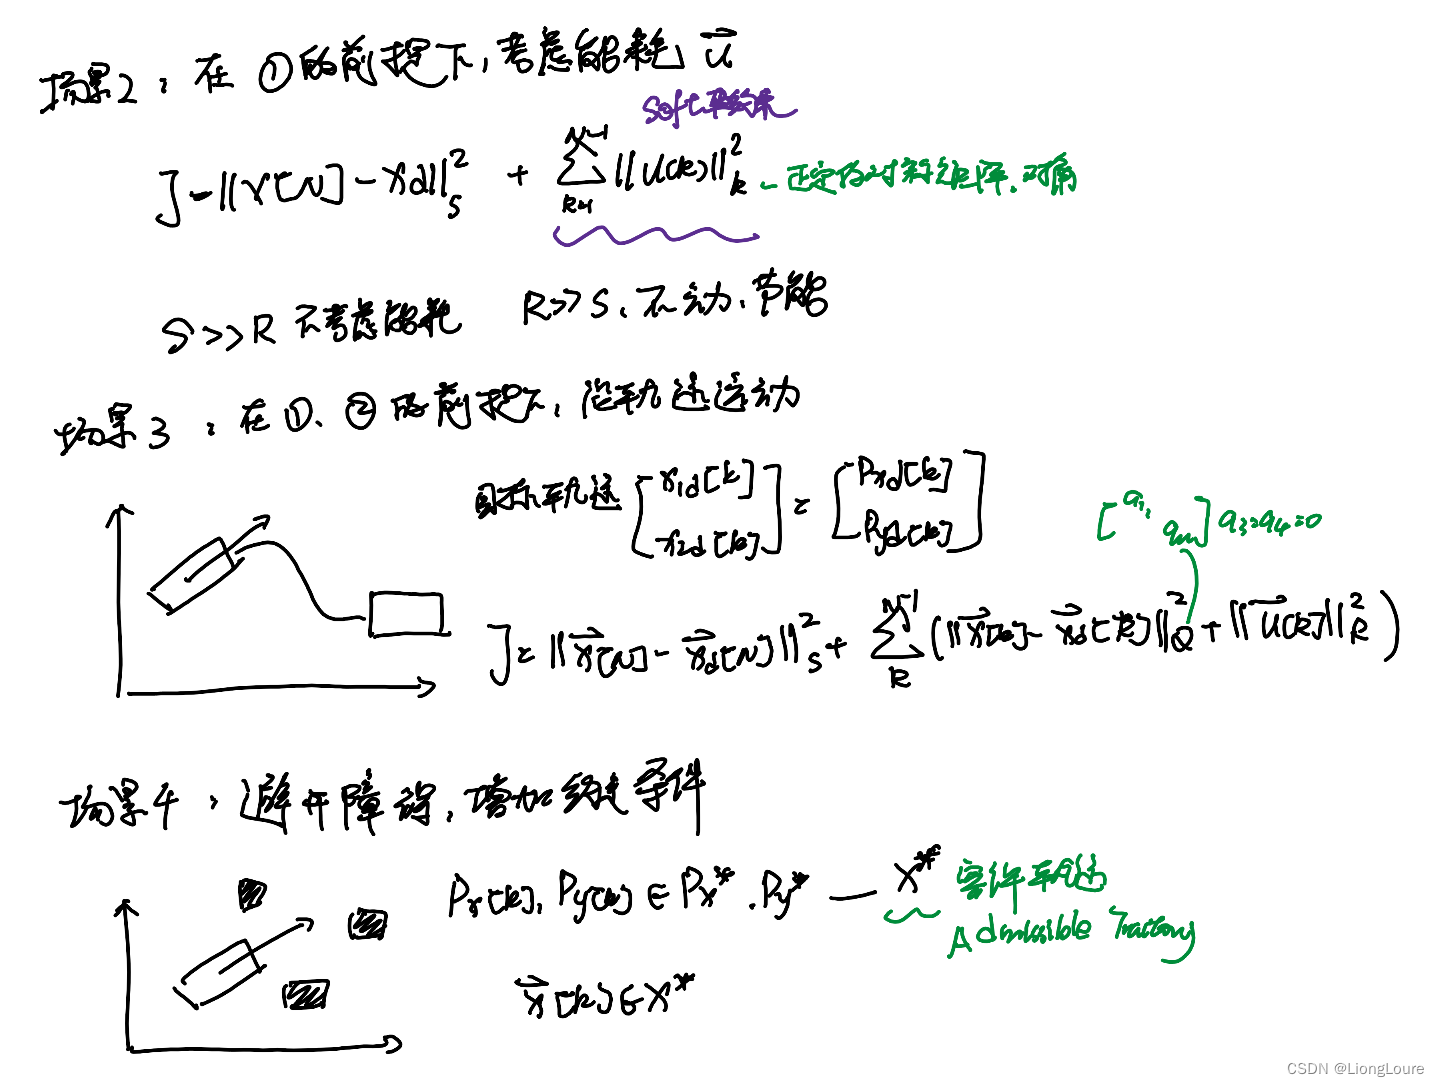 场景2：在①的前提下，考虑能耗 u⃗
soft 软约束
J = ||x[N] - xd||²_S + Σ_{k=1}^{N-1} ||u[k]||²_R - 正定的对称矩阵，对角
S>>R 不考虑能耗 R>>S、不动、节能
场景3：在①、②的前提下，沿轨迹运动
目标轨迹 [x1d[k] x2d[k]] = [Pxd[k] Pyd[k]]
[q1, ] q3=q4=0
J = ||x⃗[N] - x⃗d[N]||²_S + Σ_k^{N-1} (||x⃗[k] - x⃗d[k]||²_Q + ||u⃗[k]||²_R)
场景4：避开障碍，增加约束条件
Px[k], Py[k] ∈ Px*. Py* — X* 容许轨迹
Admissible Tractory
x⃗[k] ∈ X*
CSDN @LiongLoure